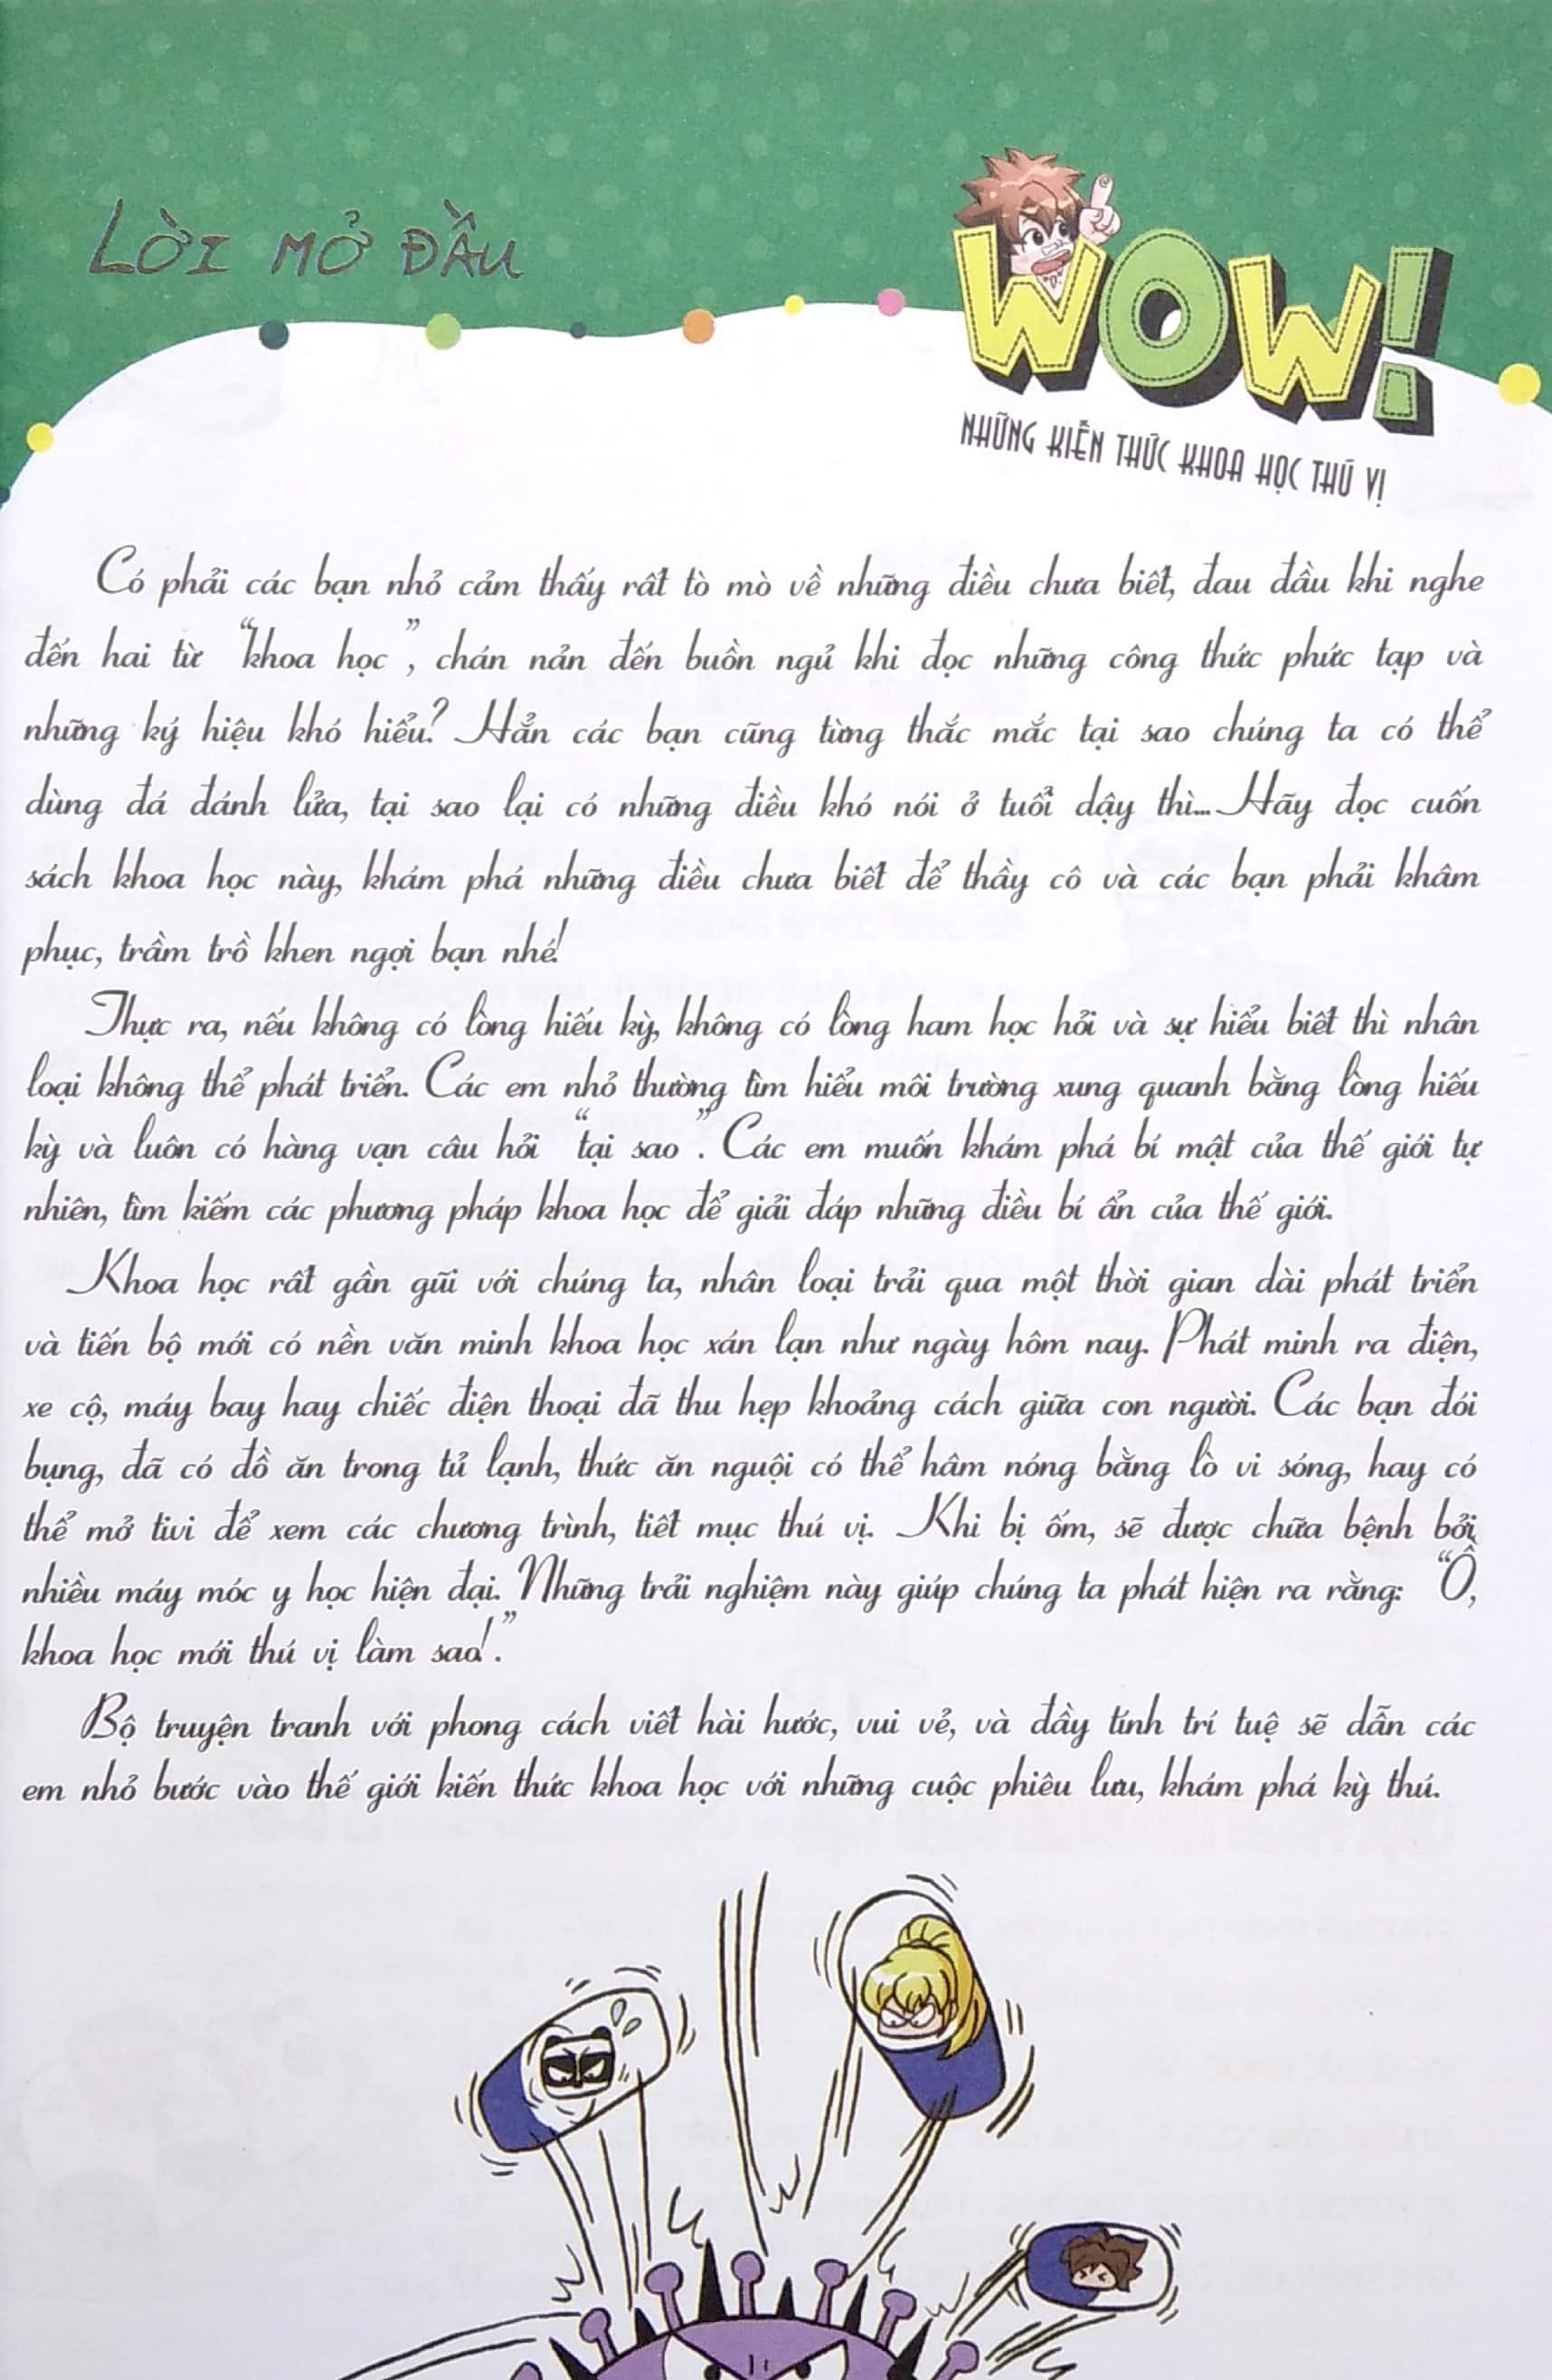 LỜI MỞ ĐẦU
WOW!
NHỮNG KIẾN THỨC KHOA HỌC THÚ VỊ
Có phải các bạn nhỏ cảm thấy rất tò mò về những điều chưa biết, đau đầu khi nghe
đến hai từ “khoa học”, chán nản đến buồn ngủ khi đọc những công thức phức tạp và
những ký hiệu khó hiểu? Hẳn các bạn cũng từng thắc mắc tại sao chúng ta có thể
dùng đá đánh lửa, tại sao lại có những điều khó nói ở tuổi dậy thì... Hãy đọc cuốn
sách khoa học này, khám phá những điều chưa biết để thầy cô và các bạn phải khâm
phục, trầm trồ khen ngợi bạn nhé!
Thực ra, nếu không có lòng hiếu kỳ, không có lòng ham học hỏi và sự hiểu biết thì nhân
loại không thể phát triển. Các em nhỏ thường tìm hiểu môi trường xung quanh bằng lòng hiếu
kỳ và luôn có hàng vạn câu hỏi “tại sao”. Các em muốn khám phá bí mật của thế giới tự
nhiên, tìm kiếm các phương pháp khoa học để giải đáp những điều bí ẩn của thế giới.
Khoa học rất gần gũi với chúng ta, nhân loại trải qua một thời gian dài phát triển
và tiến bộ mới có nền văn minh khoa học xán lạn như ngày hôm nay. Phát minh ra điện,
xe cộ, máy bay hay chiếc điện thoại đã thu hẹp khoảng cách giữa con người. Các bạn đói
bụng, đã có đồ ăn trong tủ lạnh, thức ăn nguội có thể hâm nóng bằng lò vi sóng, hay có
thể mở tivi để xem các chương trình, tiết mục thú vị. Khi bị ốm, sẽ được chữa bệnh bởi
nhiều máy móc y học hiện đại. Những trải nghiệm này giúp chúng ta phát hiện ra rằng: “Ồ,
khoa học mới thú vị làm sao!”.
Bộ truyện tranh với phong cách viết hài hước, vui vẻ, và đầy tính trí tuệ sẽ dẫn các
em nhỏ bước vào thế giới kiến thức khoa học với những cuộc phiêu lưu, khám phá kỳ thú.